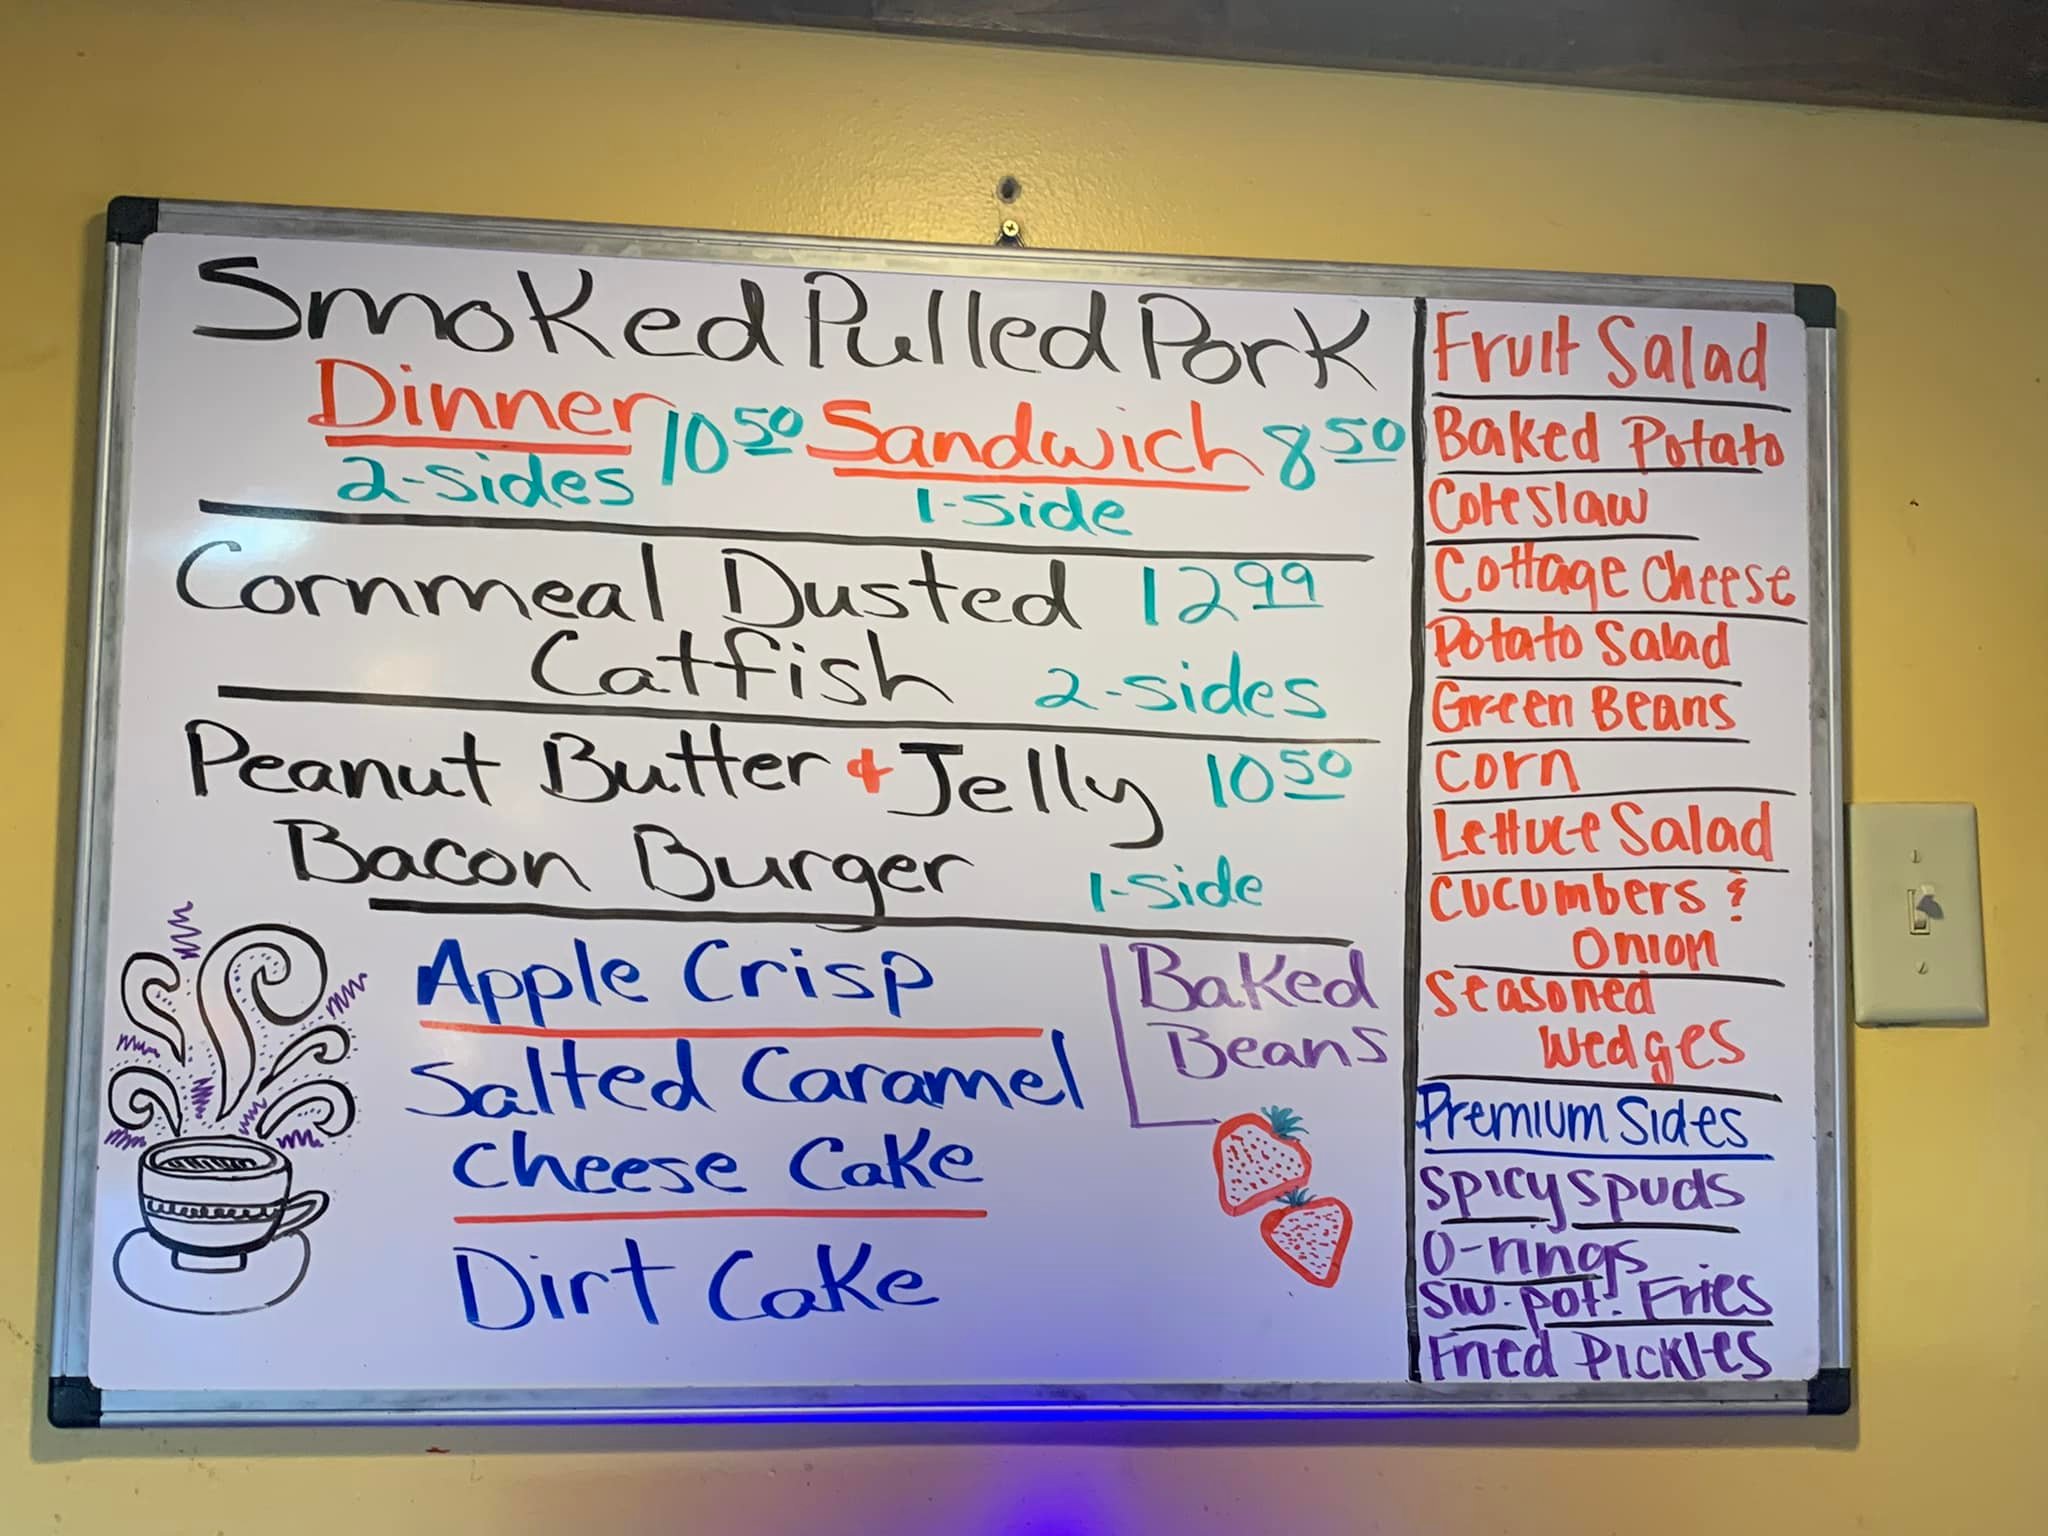 Smoked Pulled Pork
Dinner 10 50 Sandwich 8 50
2-sides 1-side
Cornmeal Dusted 12 99
Catfish 2-sides
Peanut Butter + Jelly 10 50
Bacon Burger 1-side
Apple Crisp
Salted Caramel
Cheese Cake
Dirt Cake
Baked
Beans
Fruit Salad
Baked Potato
Coleslaw
Cottage Cheese
Potato Salad
Green Beans
Corn
Lettuce Salad
Cucumbers &
Onion
Seasoned
Wedges
Premium Sides
Spicy Spuds
O-rings
Sw. pot. Fries
Fried Pickles